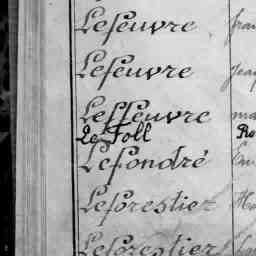 Lefeuvre
Lefeuvre
Leffeuvre
Le Foll
Lefondré
Leforestier
Leforestier